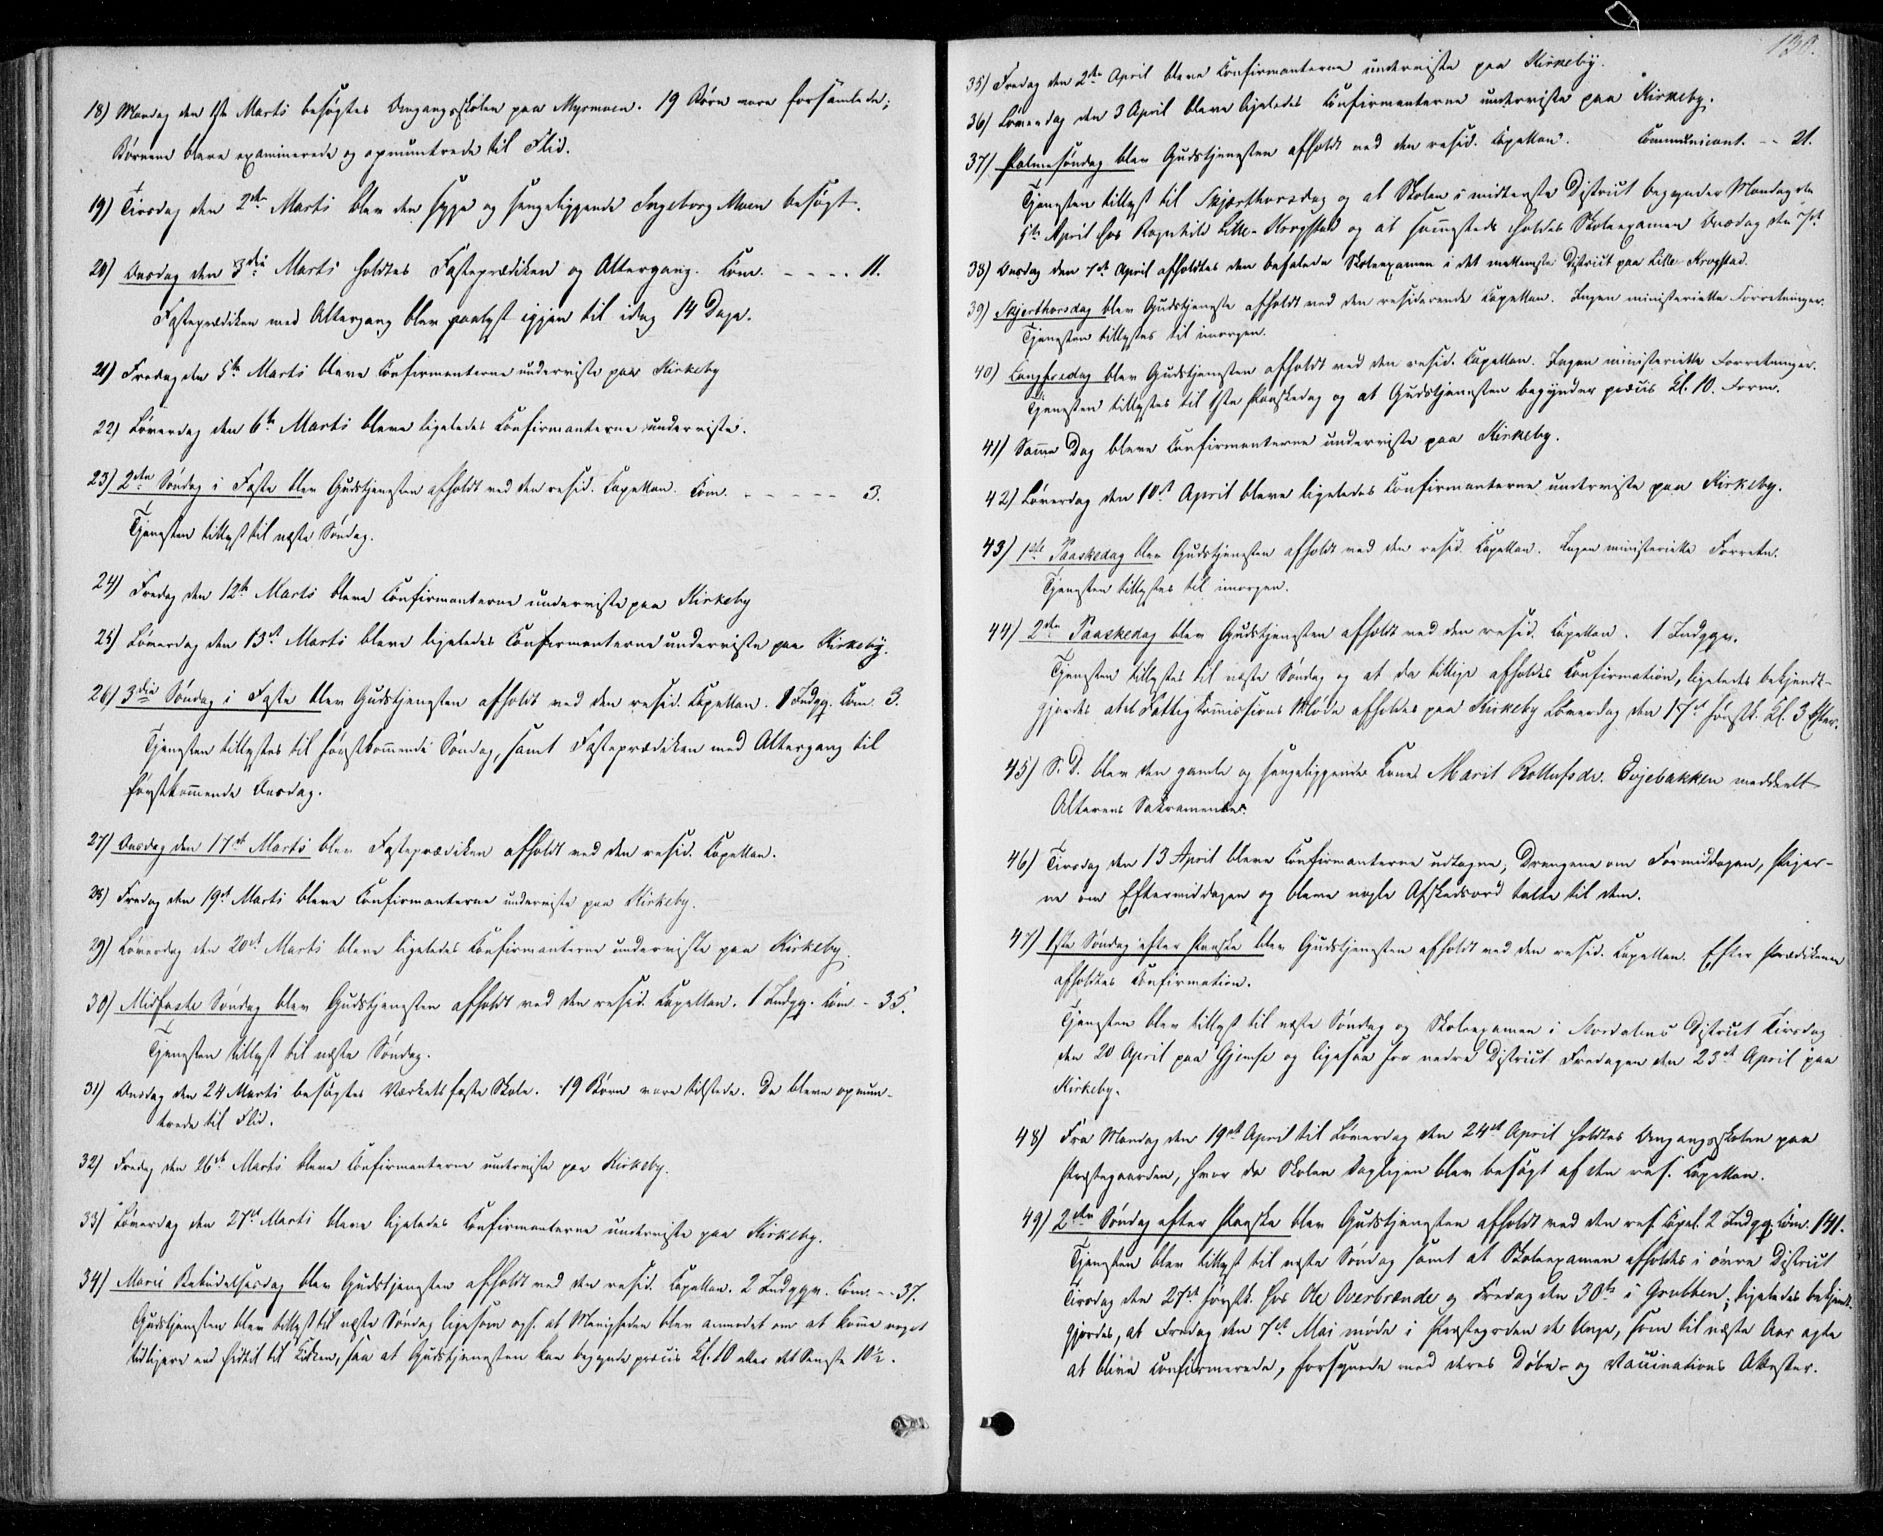 18) Mandag den 1ste Marts besøgtes Omgangsskolen paa Myrmoen. 19 Børn vare forsamlede;
Børnene bleve examinerede og opmuntrede til Flid.
19) Tirsdag den 2den Marts blev den syge og sengeliggende Ingeborg Moen besøgt.
20) Onsdag den 3die Marts holdtes Fasteprædiken og Altergang. Com. - - - - 11.
Fasteprædiken med Altergang blev paalyst igjen til idag 14 Dage.
21) Fredag den 5te Marts bleve Confirmanterne underviste paa Kirkeby
22) Løverdag den 6te Marts bleve ligeledes Confirmanterne underviste.
23) 2den Søndag i Faste blev Gudstjenesten afholdt ved den resid. Capellan. Com. - - - - - 3.
Tjenesten tillyst til næste Søndag.
24) Fredag den 12te Marts bleve Confirmanterne underviste paa Kirkeby
25) Løverdag den 13de Marts bleve ligeledes Confirmanterne underviste paa Kirkeby.
26) 3die Søndag i Faste blev Gudstjenesten afholdt ved den resid. Capellan. 1 Indgg. Com. 3.
Tjenesten tillystes til førstkommende Søndag, samt Fasteprædiken med Altergang til
førstkommende Onsdag.
27) Onsdag den 17de Marts blev Fasteprædiken afholdt ved den resid. Capellan.
28) Fredag den 19de Marts bleve Confirmanterne underviste paa Kirkeby.
29) Løverdag den 20de Marts bleve ligeledes Confirmanterne underviste paa Kirkeby.
30) Midfaste Søndag blev Gudstjenesten afholdt ved den resid. Capellan. 1 Indgg. Com - 35.
Tjenesten tillyst til næste Søndag.
31) Onsdag den 24 Marts besøgtes Værkets faste Skole. 19 Børn vare tilstede. De bleve opmun-
trede til Flid.
32) Fredag den 26de Marts bleve Confirmanterne underviste paa Kirkeby.
33) Løverdag den 27de Marts bleve ligeledes Confirmanterne underviste paa Kirkeby.
34) Mariæ Bebudelsesdag blev Gudstjenesten afholdt ved den resid. Capellan. 2 Indggr. Com. - - 37.
Gudstjenesten blev tillyst til næste Søndag ligesom ogs. at Menigheden blev anmodet om at komme noget
tidligere end hidtil til Kirken, saa at Gudstjenesten kan begynde præcis Kl. 10 eller det Seneste 10½.
130.
35) Fredag den 2den April bleve Confirmanterne underviste paa Kirkeby.
36) Løverdag den 3 April bleve ligeledes Confirmanterne underviste paa Kirkeby.
37) Palmesøndag blev Gudstjenesten afholdt ved den resid. Capellan. Communicant. - - 21.
Tjenesten tillyst til Skjærthorsdag og at Skolen i midterste District begynder Mandag den
5te April hos Ragnhild Lille-Krogstad og at sammesteds holdes Skoleexamen Onsdag den 7de.
38) Onsdag den 7de April afholdtes den befalede Skoleexamen i det mellemste District paa Lille Krogstad.
39) Skjerthorsdag blev Gudstjeneste afholdt ved den residerende Capellan. Ingen ministerielle Forretninger.
Tjenesten tillystes til imorgen.
40) Langfredag blev Gudstjenesten afholdt ved den resid. Capellan. Ingen ministerielle Forretninger.
Tjenesten tillystes til 1ste Paaskedag og at Gudstjenesten begynder præcis Kl. 10. Form.
41) Samme Dag bleve Confirmanterne underviste paa Kirkeby.
42) Løverdag den 10de April bleve ligeledes Confirmanterne underviste paa Kirkeby.
43) 1ste Paaskedag blev Gudstjenesten afholdt ved den resid. Capellan. Ingen ministerielle Forretn.
Tjenesten tillystes til imorgen.
44) 2den Paaskedag blev Gudstjenesten afholdt ved den resid. Capellan. 1 Indggr.
Tjenesten tillystes til næste Søndag og at da tillige afholdes Confirmation, ligeledes bekjendt-
gjordes at et Fattigkommissions Møde afholdes paa Kirkeby Løverdag den 17de førstk. Kl. 3 Efter.
45) S. D. blev den gamle og sengeliggende Kone Marit Rollufsdr. Evjebakken meddeelt
Alterens Sakramente.
46) Tirsdag den 13 April bleve Confirmanterne udtagne, Drengene om Formiddagen, Piger-
ne om Eftermiddagen og bleve nogle Afskedsord talte til dem.
47) 1ste Søndag efter Paaske blev Gudstjenesten afholdt ved den resid. Capellan. Efter Prædikenen
afholdtes Confirmation.
Tjenesten blev tillyst til næste Søndag og Skoleexamen i Nordalens District Tirsdag
den 20 April paa Gjemse og ligesaa for nedre District Fredagen den 23de April paa
Kirkeby.
48) Fra Mandag den 19de April til Løverdag den 24de April holdtes Omgangsskolen paa
Præstegaarden, hvor da Skolen dagligen blev besøgt af den res. Capellan.
49) 2den Søndag efter Paaske blev Gudstjenesten afholdt ved den res Capel. 2 Indgg. Com. 141.
Tjenesten blev tillyst til næste Søndag samt at Skoleexamen afholdes i øvre District
Tirsdag den 27de førstk. hos Ole Overbrænde og Fredag den 30te i Grubben; ligeledes bekjendt-
gjordes, at Fredag den 7de Mai møde i Præstegrden de Unge, som til næste Aar agte
at blive confirmerede, forsynede med deres Døbe- og Vaccinations Attester.